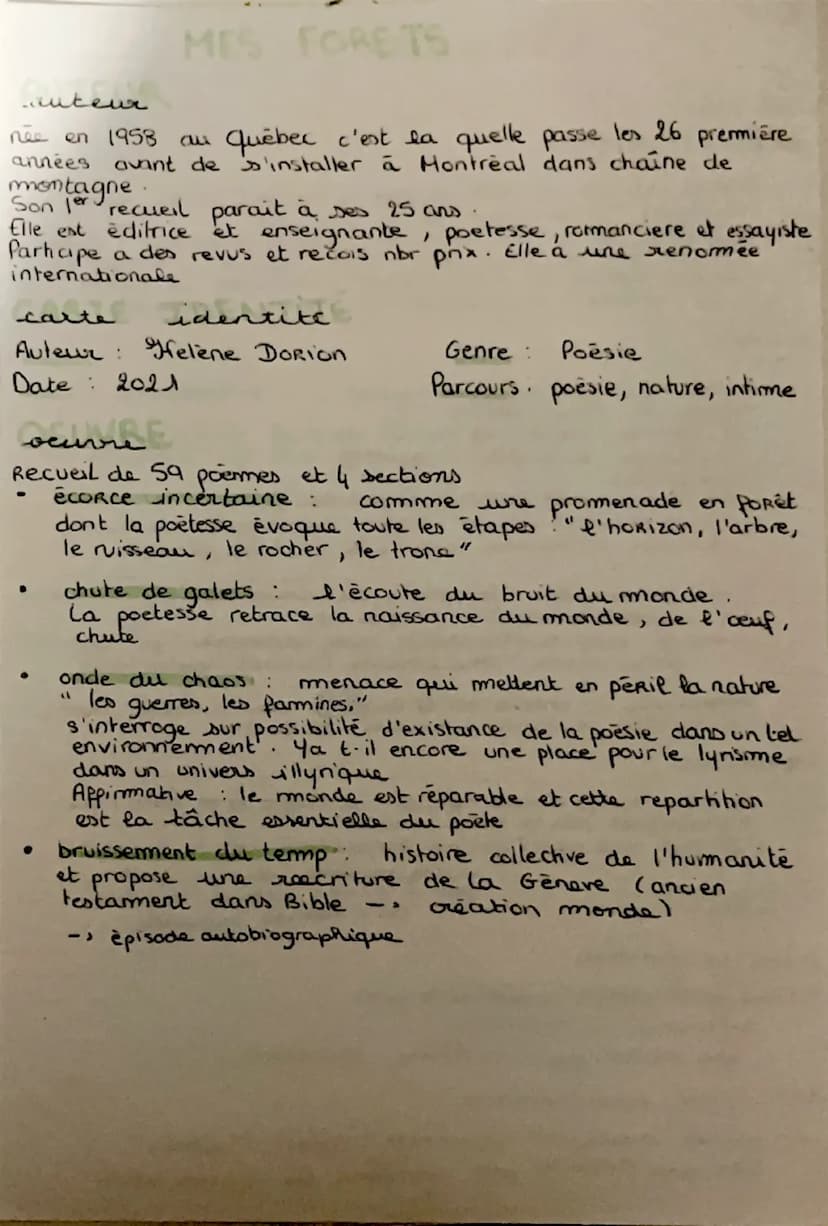 MES FORETS
auteur
née en 1958 au Québec c'est la quelle passe les 26 premmière
années avant de s'installer à Montréal dans chaîne de
montagne.
Son 1er recueil parait à ses 25 ans.
Elle est éditrice et enseignante, poetesse, romanciere et essayiste
Participe a des revus et recois nbr prix. Elle à une renommée
internationale
carte identité
Auteur : Helène DORION Genre : Poésie
Date : 2021 Parcours. poésie, nature, intime
oeuvre
Recueil de 59 poèmes et 4 sections
- écorce incertaine : comme une promenade en forêt
dont la poètesse évoque toute les étapes : "l'horizon, l'arbre,
le ruisseau, le rocher, le tronc"
• chute de galets : l'écoute du bruit du monde.
La poetesse retrace la naissance du monde, de l'œuf,
chute
• onde du chaos : menace qui mettent en péril la nature
"les guerres, les famines,"
s'interroge sur possibilité d'existance de la poésie dans un tel
environnement. Ya t-il encore une place pour le lyrisme
dans un univers illyrique
Affirmative : le monde est réparable et cette repartition
est la tâche essentielle du poète
• bruissement du temp : histoire collective de l'humanité
et propose une reecriture de la Génave (ancien
testament dans Bible -> création monde)
-> épisode autobiographique